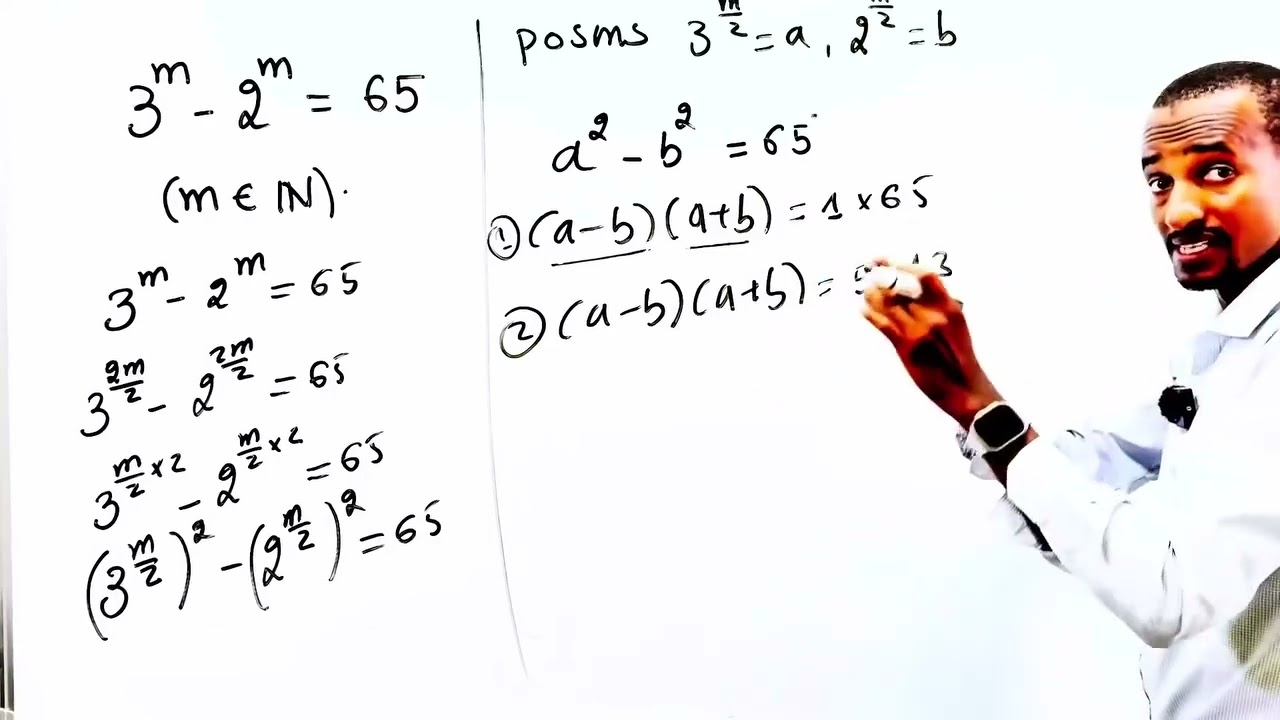 3^m - 2^m = 65
(m ∈ ℕ).
3^m - 2^m = 65
3^(2m/2) - 2^(2m/2) = 65
3^(m/2 × 2) - 2^(m/2 × 2) = 65
(3^(m/2))^2 - (2^(m/2))^2 = 65
posms 3^(m/2) = a, 2^(m/2) = b
a^2 - b^2 = 65
① (a-b)(a+b) = 1 × 65
② (a-b)(a+b) =